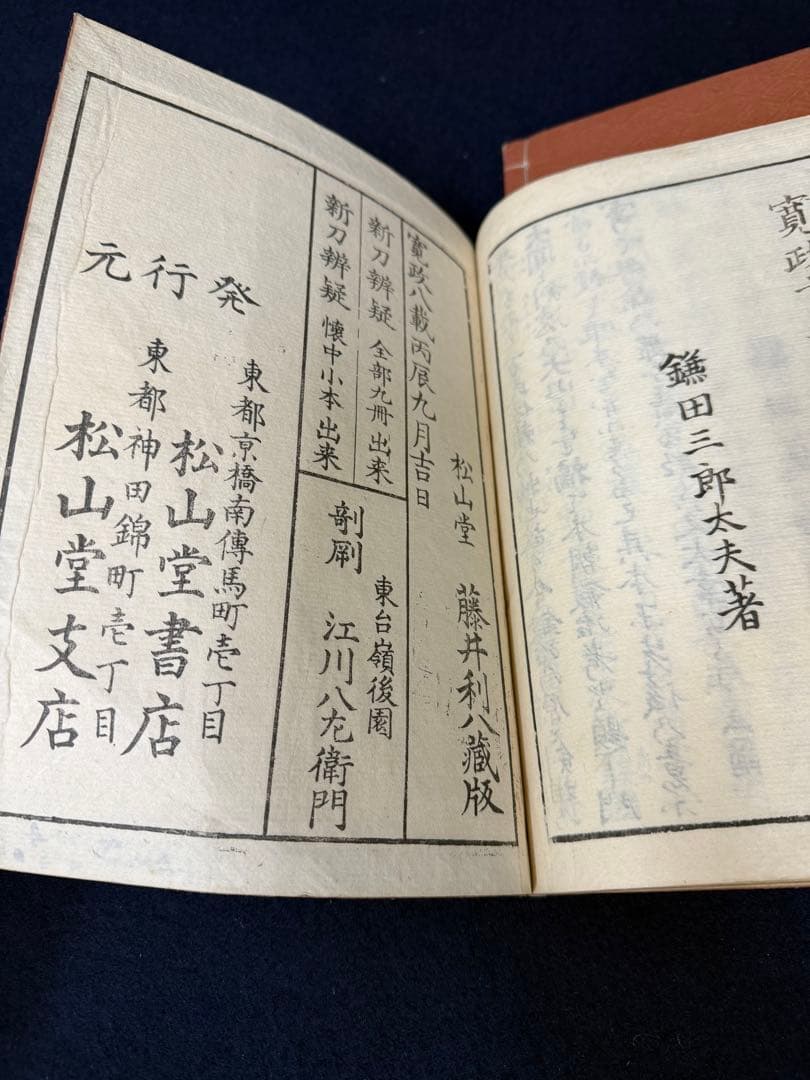 寛政
鎌田三郎太夫著
寛政八載丙辰九月吉日
松山堂 藤井利八藏版
新刀辨疑 全部九冊 出来
新刀辨疑 懐中小本 出来
剞劂
東台嶺後園
江川八左衛門
発行元
東都京橋南傳馬町壱丁目
松山堂書店
東都神田錦町壱丁目
松山堂支店